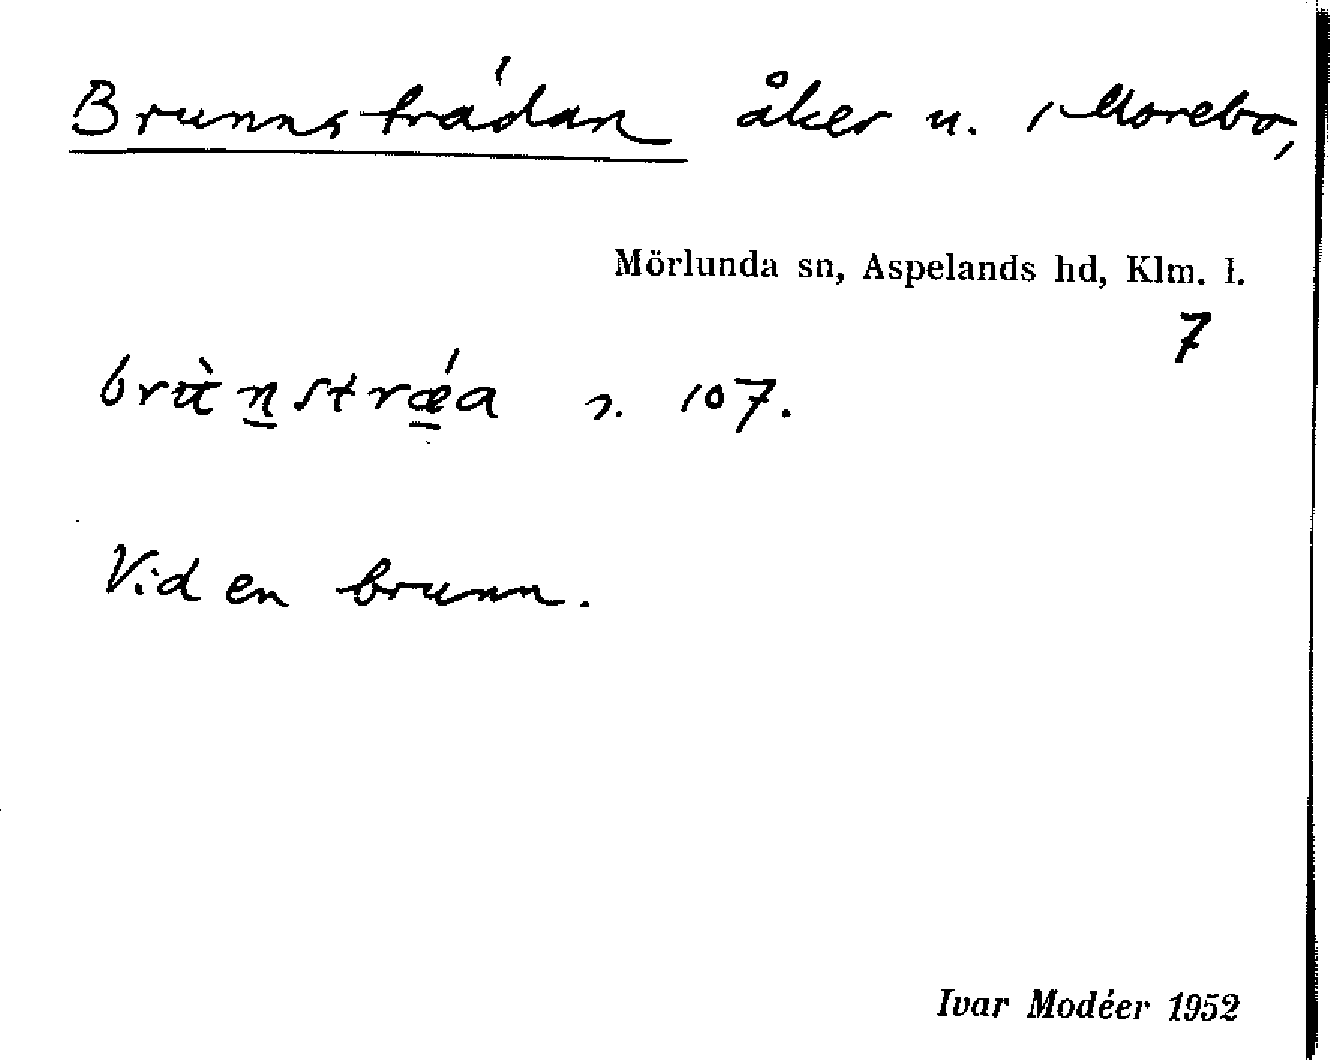 Brunnsträdan åker u. 1 Morebo,
Mörlunda sn, Aspelands hd, Klm. l.
7
s. 107.
Vid en brunn.
Ivar Modéer 1952